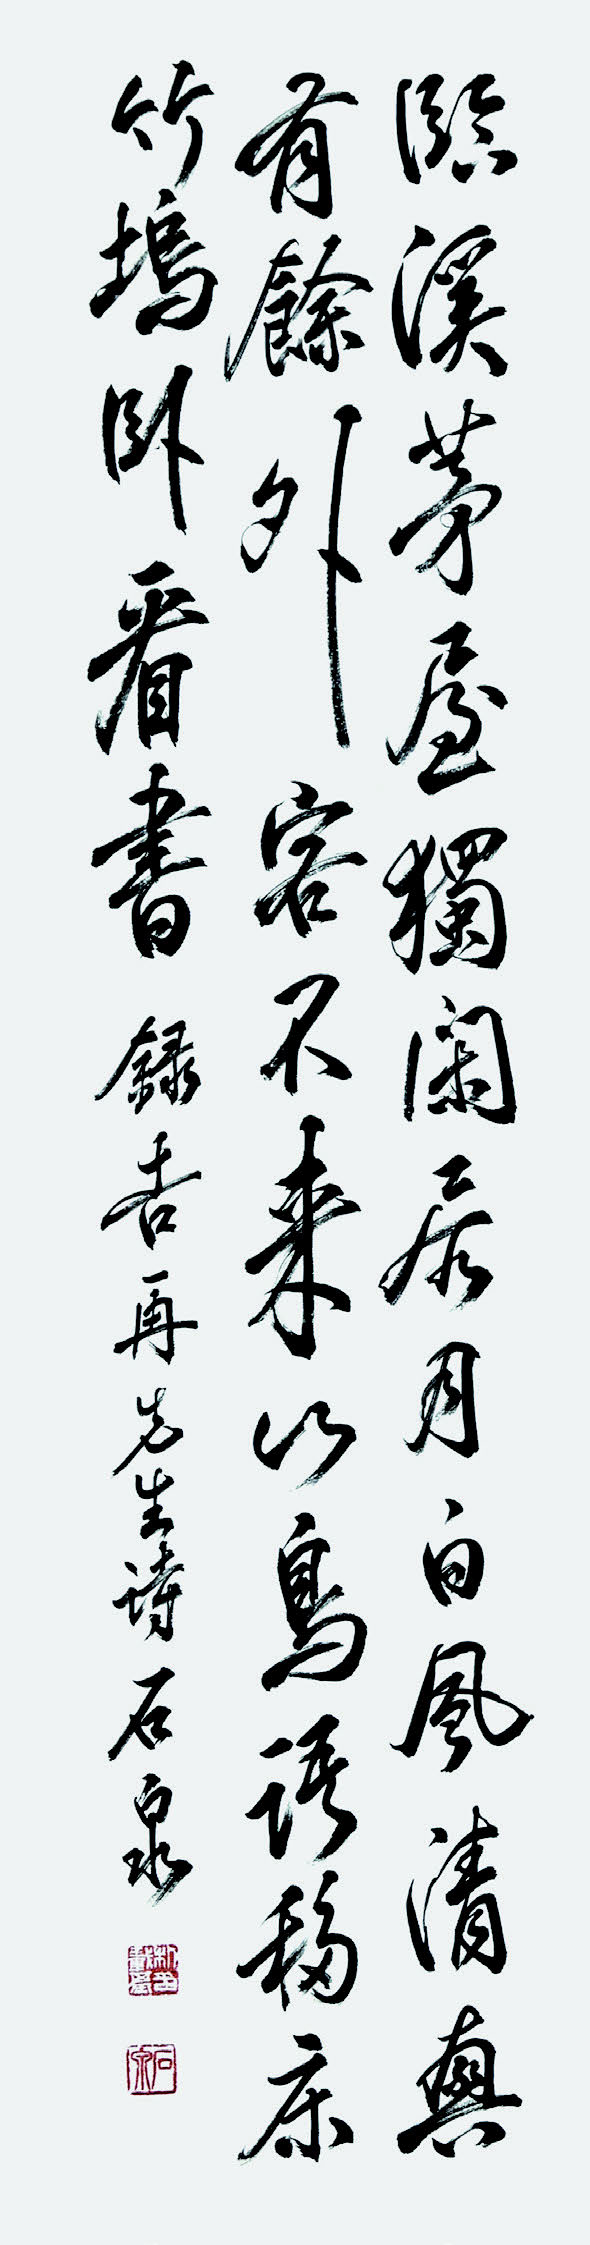 臨溪茅屋獨閑居月白風清興
有餘外客不來山鳥語移床
竹塢臥看書 録吉再先生詩 石泉
石泉